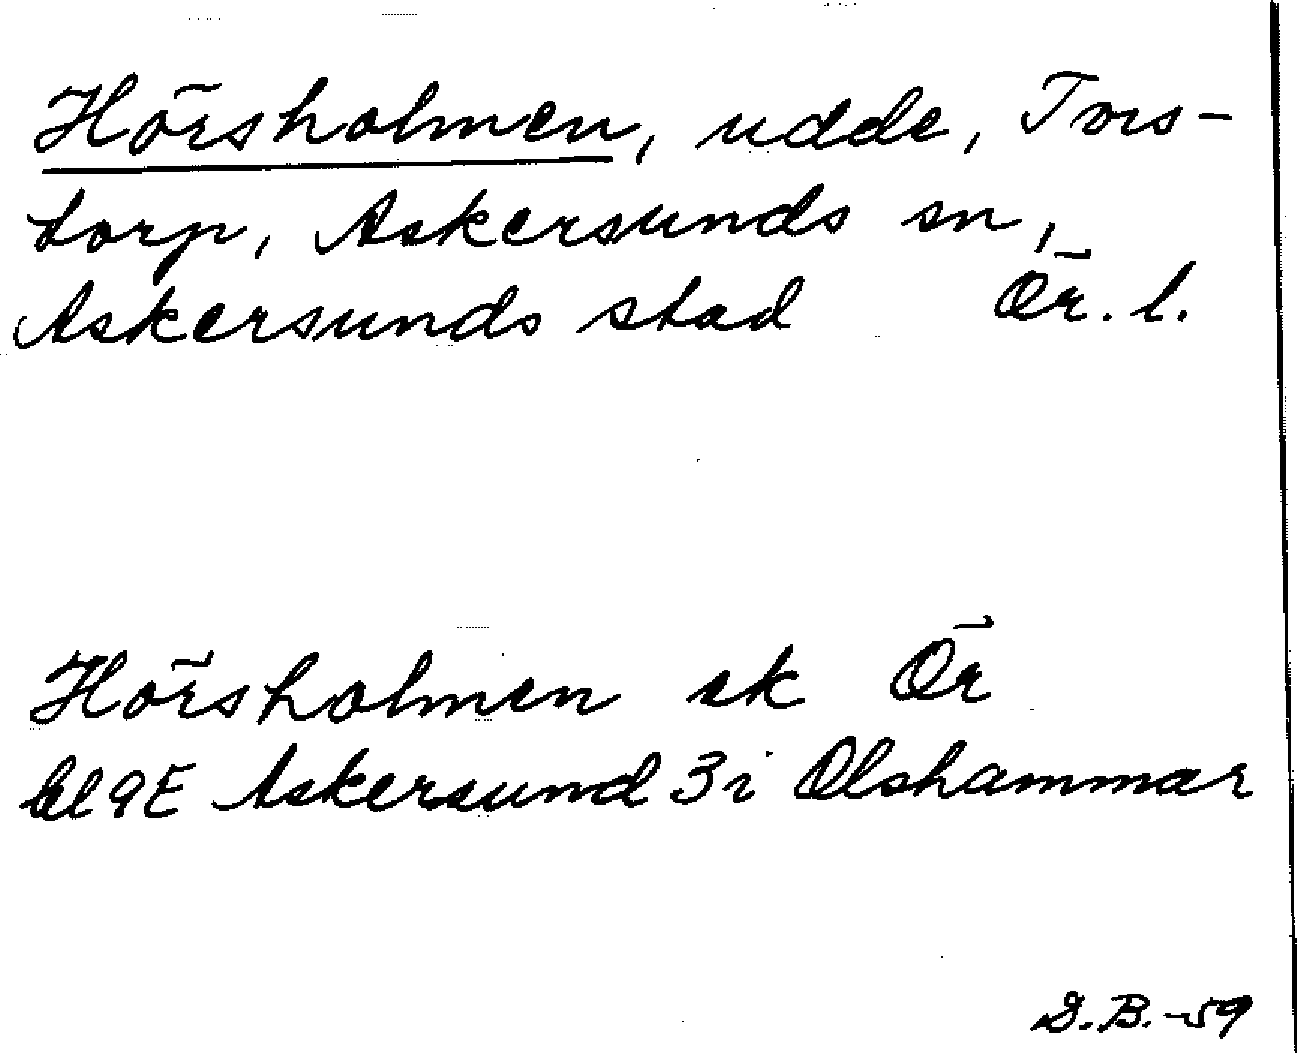 Hörsholmen, udde, Tors-
torp, Askersunds sn,
Askersunds stad Ör. l.
Hörsholmen ek Ör
bl 9E Askersund 3i Olshammar
D.B.-59